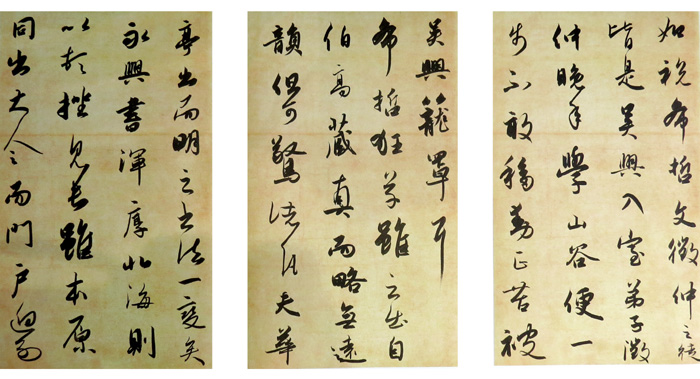 如祝希哲文徵仲之徒
皆是吴興入室弟子徵
仲晚年學山谷便一
步不敢移動正苦被
吴興籠罩耳
希哲狂草雖云出自
伯高藏真而略無遠
韻但可驚諸凡夫華
亭出而明之書法一變矣
永興書渾厚北海則
以頓挫見長雖本原
同出大令而門戶迥別